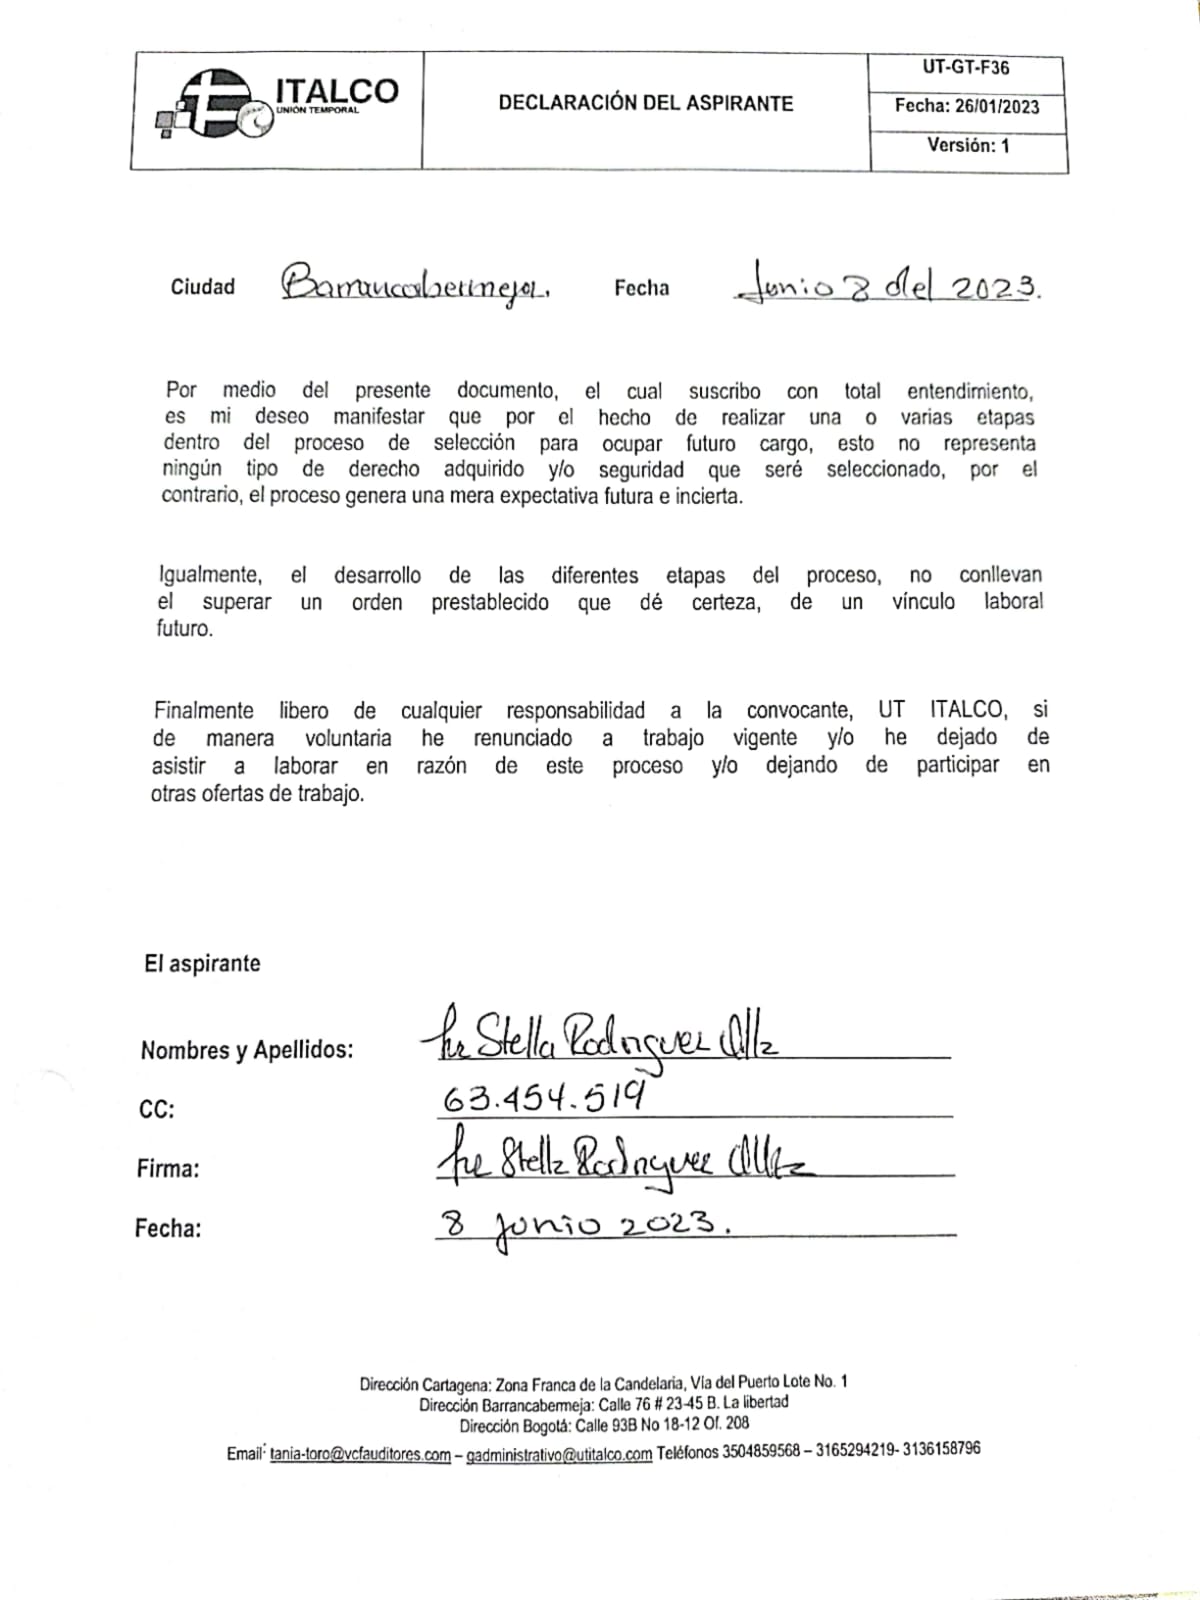 ITALCO
UNIÓN TEMPORAL
DECLARACIÓN DEL ASPIRANTE
UT-GT-F36
Fecha: 26/01/2023
Versión: 1
Ciudad Barrancabermeja. Fecha Junio 8 del 2023.
Por medio del presente documento, el cual suscribo con total entendimiento,
es mi deseo manifestar que por el hecho de realizar una o varias etapas
dentro del proceso de selección para ocupar futuro cargo, esto no representa
ningún tipo de derecho adquirido y/o seguridad que seré seleccionado, por el
contrario, el proceso genera una mera expectativa futura e incierta.
Igualmente, el desarrollo de las diferentes etapas del proceso, no conllevan
el superar un orden prestablecido que dé certeza, de un vínculo laboral
futuro.
Finalmente libero de cualquier responsabilidad a la convocante, UT ITALCO, si
de manera voluntaria he renunciado a trabajo vigente y/o he dejado de
asistir a laborar en razón de este proceso y/o dejando de participar en
otras ofertas de trabajo.
El aspirante
Nombres y Apellidos: Stella Rodriguez
CC: 63.454.519
Firma: Stella Rodriguez
Fecha: 8 junio 2023.
Dirección Cartagena: Zona Franca de la Candelaria, Vía del Puerto Lote No. 1
Dirección Barrancabermeja: Calle 76 # 23-45 B. La libertad
Dirección Bogotá: Calle 93B No 18-12 Of. 208
Email: tania-toro@vcfauditores.com – gadministrativo@utitalco.com Teléfonos 3504859568 – 3165294219- 3136158796